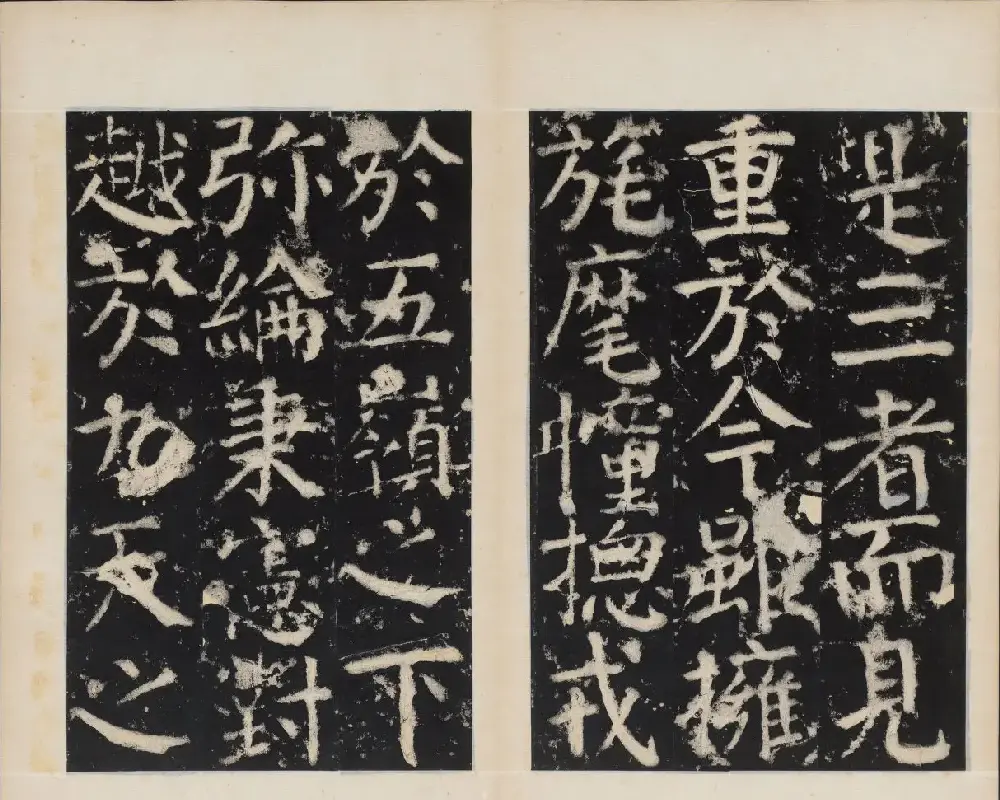 是三者而見
重於今雖擁
旄麾幢揔戎
於五嶺之下
弥綸秉憲對
越於九天之